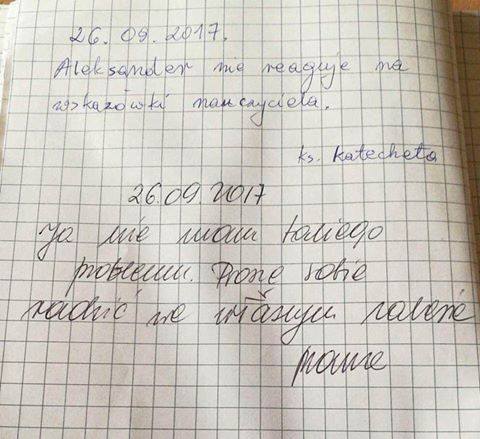 26.09.2017.
Aleksander nie reaguje na
wskazówki nauczyciela.
ks. Katecheta
26.09.2017
Ja nie mam takiego
problemu. Proszę sobie
radzić we własnym zakresie
mama